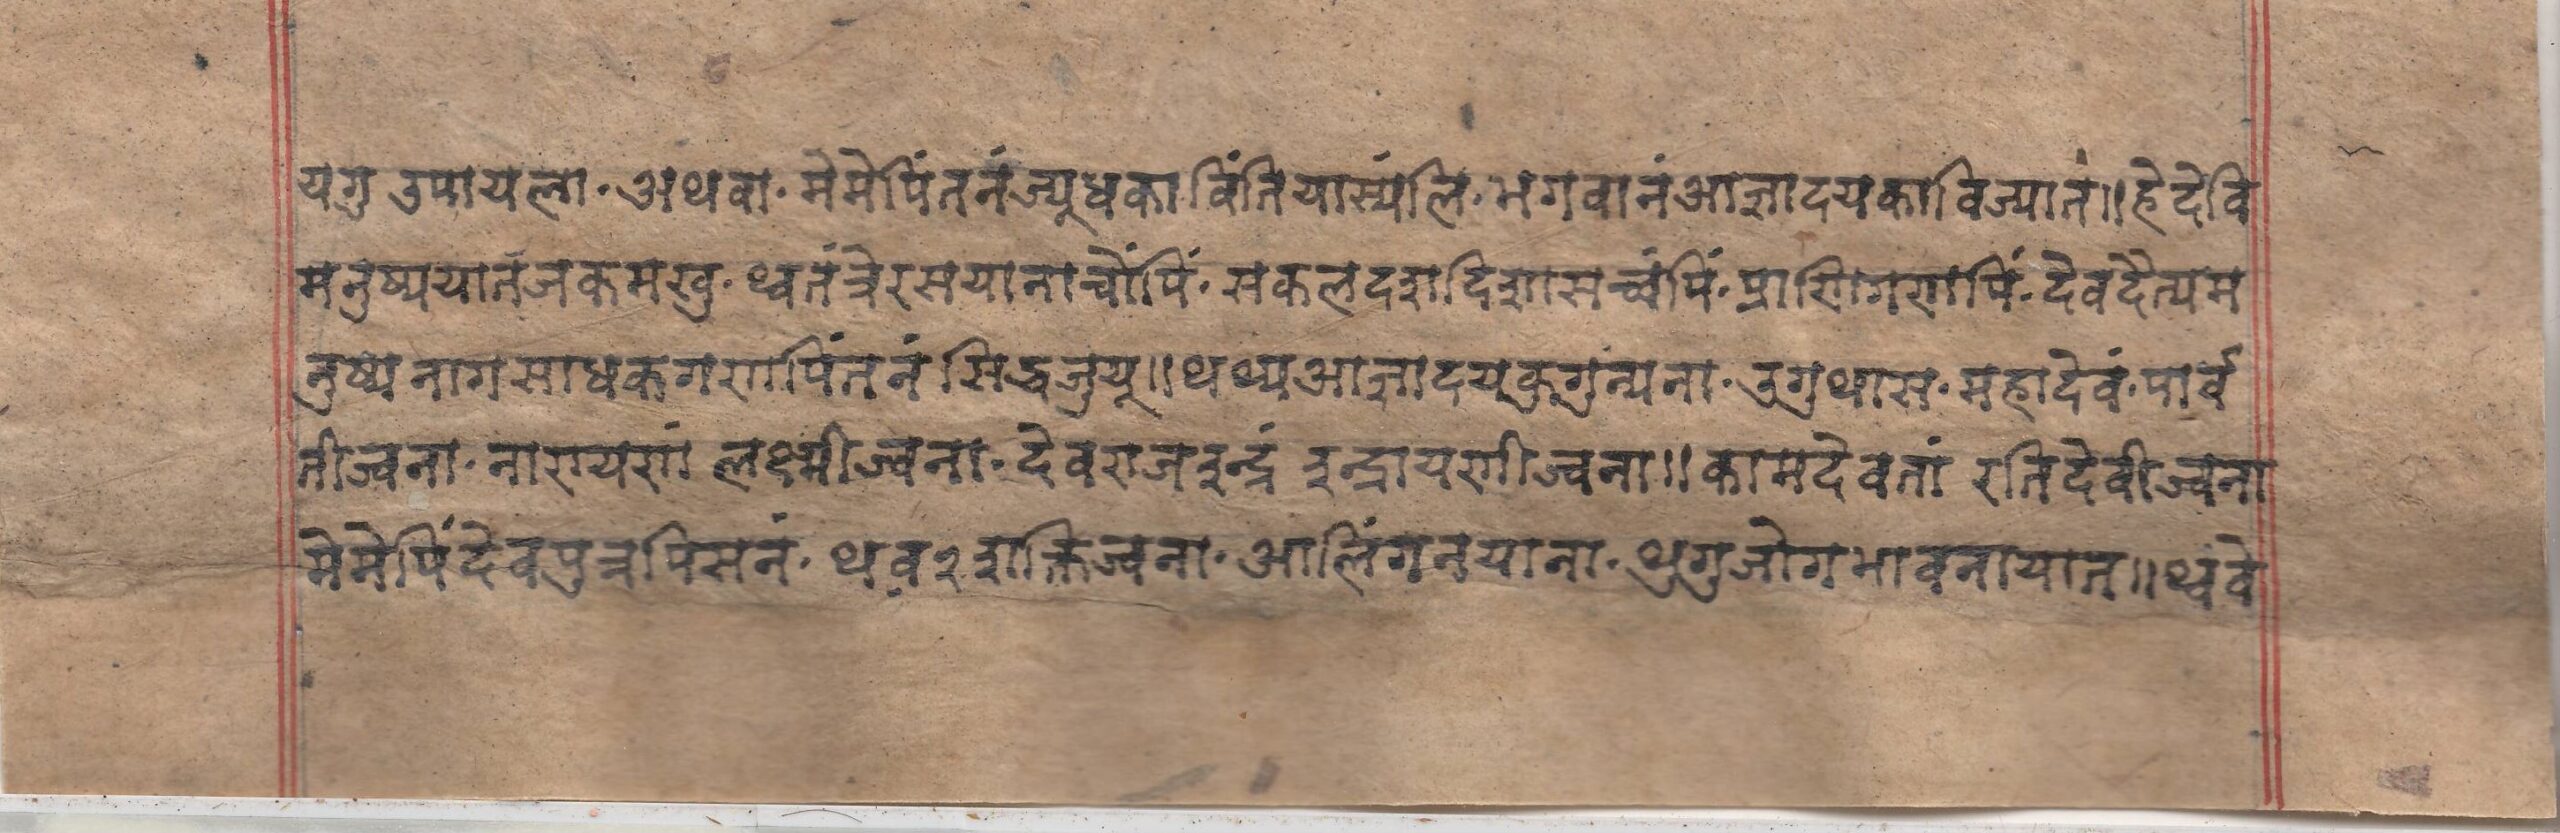 यगु उपायला· अथवा· मेमेपिंतनं ज्यूधका विंतियास्यंलि· भगवानं आज्ञादयकाविज्यातं॥ हेदेवि
मनुष्ययातंजकमखु· थ्वतंत्रेरसयानाच्वोंपिं· सकलदशदिशासच्वंपिं· प्राणिगणपिं· देवदैत्यम
नुष्य नागसाधकगणपिंतनं सिद्धजुयू॥ थथ्यआज्ञादयकुगुन्यना· उगुथास· महादेवं· पार्व
तीज्वना· नारायणं लक्ष्मीज्वना· देवराजइन्द्रं इन्द्रायणीज्वना॥ कामदेवतां रतिदेवीज्वना
मेमेपिंदेवपुत्रपिसनं· थव२शक्तिज्वना· आलिंगनयाना· थुगुजोगभावनायात॥ थ्वंवे